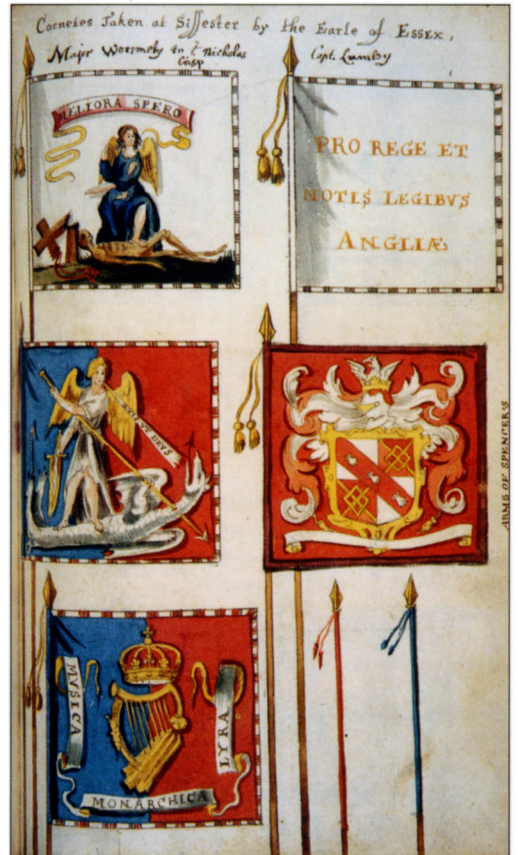 Cornetes Taken at Sissester by the Earle of Essex,
Major Wormely to Sr Nicholas
Crisp
Capt. Lumley
MELIORA SPERO
PRO REGE ET
NOTIS LEGIBVS
ANGLIÆ
DEVS
ARMS OF SPENCER'S
MVSICA
MONARCHICA
LYRA